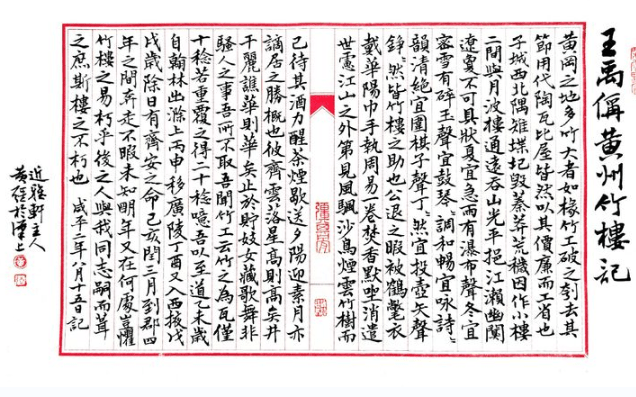 王禹偁黄州竹樓記
黄岡之地多竹大者如椽竹工破之刳去其
節用代陶瓦比屋皆然以其價廉而工省也
子城西北隅雉堞圮毀蓁莽荒穢因作小樓
二間與月波樓通遠吞山光平挹江瀨幽闃
遼夐不可具狀夏宜急雨有瀑布聲冬宜
密雪有碎玉聲宜鼓琴〻調和暢宜咏詩〻
韻清絕宜圍棋子聲丁〻然宜投壺矢聲
錚〻然皆竹樓之助也公退之暇被鶴氅衣
戴華陽巾手執周易一卷焚香默坐消遣
世慮江山之外第見風颿沙鳥煙雲竹樹而
已待其酒力醒茶煙歇送夕陽迎素月亦
謫居之勝概也彼齊雲落星高則高矣井
干麗譙華則華矣止於貯妓女藏歌舞非
騷人之事吾所不取吾聞竹工云竹之為瓦僅
十稔若重覆之得二十稔噫吾以至道乙未歲
自翰林出滁上丙申移廣陵丁酉又入西掖戊
戌歲除日有齊安之命己亥閏三月到郡四
年之間奔走不暇未知明年又在何處豈懼
竹樓之易朽乎後之人與我同志嗣而葺
之庶斯樓之不朽也 咸平二年八月十五日記
軒主人
於漢上